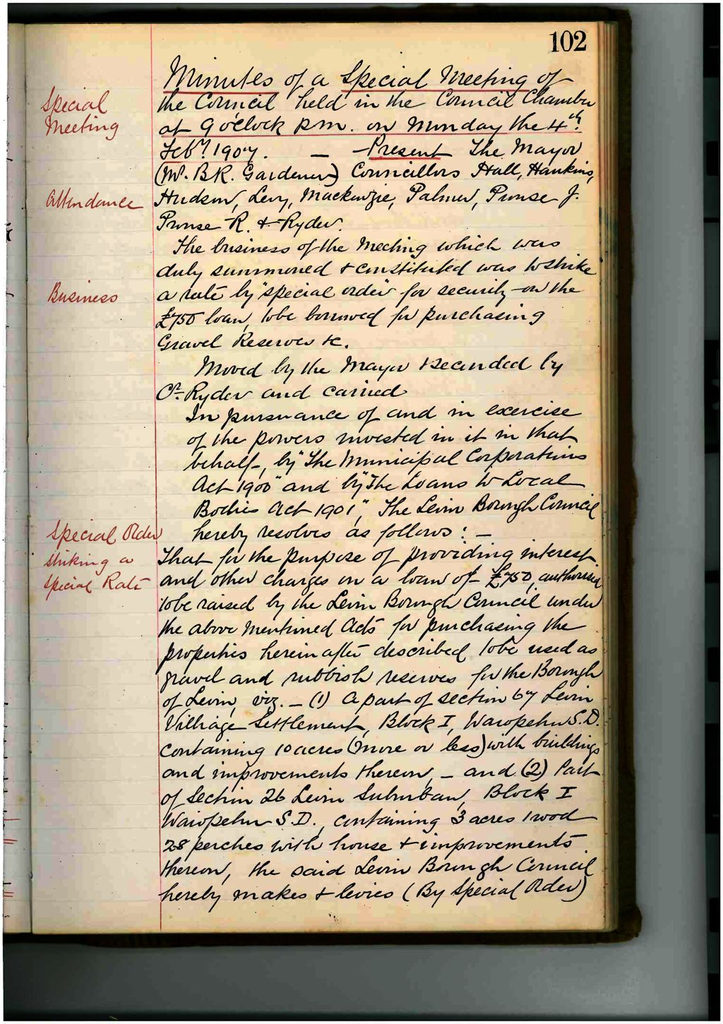 102
Minutes of a Special Meeting of
Special
the Council held in the Council Chamber
Meeting
at 9 o'clock p.m. on Monday the 4th
Feby 1907. — Present The Mayor
(Mr. B.R. Gardener) Councillors Hall, Hankins,
Attendance
Hudson, Levy, Mackenzie, Palmer, Prouse J.
Prouse R. & Ryder.
The business of the Meeting which was
duly summoned & constituted was to strike
Business
a rate by "special order" for security on the
£750 loan, to be borrowed for purchasing
Gravel Reserves &c.
Moved by the Mayor seconded by
Cr. Ryder and carried
In pursuance of and in exercise
of the powers invested in it in that
behalf, by "The Municipal Corporations
Act 1900" and by "The Loans to Local
Bodies Act 1901", The Levin Borough Council
Special Order
hereby resolves as follows: —
striking a
That for the purpose of providing interest
Special Rate
and other charges on a loan of £750, authorised
to be raised by the Levin Borough Council under
the above mentioned Acts for purchasing the
properties herein after described to be used as
gravel and rubbish reserves for the Borough
of Levin, viz. — (1) A part of section 67 Levin
Village Settlement, Block I, Waiopehu S.D.
containing 10 acres (more or less) with buildings
and improvements thereon, — and (2) Part
of Section 26 Levin Suburban, Block I
Waiopehu S.D., containing 3 acres 1 rood
28 perches with house & improvements
thereon, the said Levin Borough Council
hereby makes & levies (By Special Order)